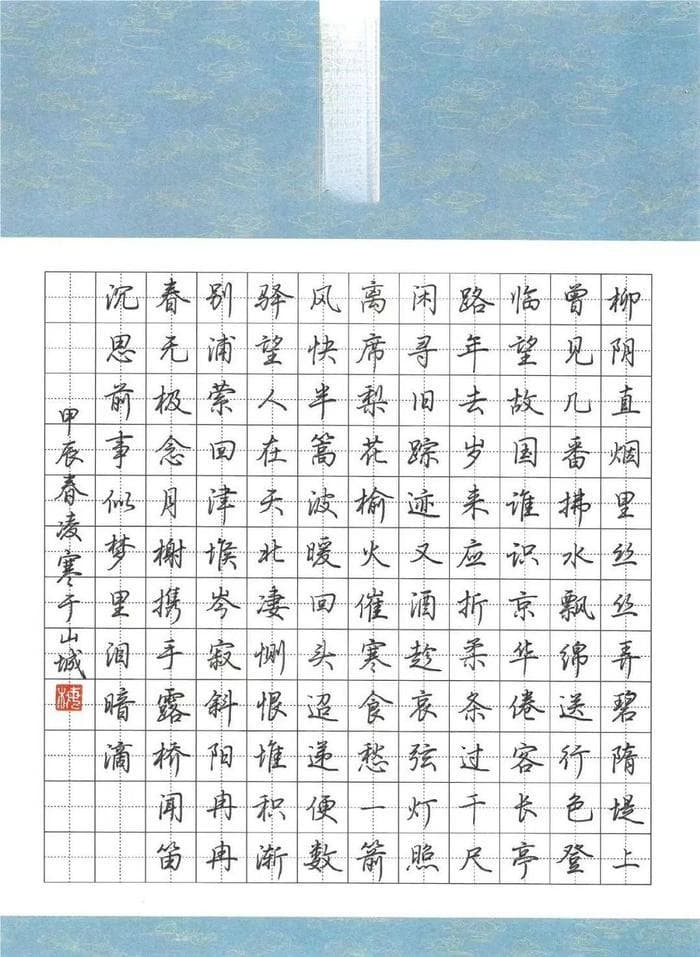 柳阴直烟里丝丝弄碧隋堤上
曾见几番拂水飘绵送行色登
临望故国谁识京华倦客长亭
路年去岁来应折柔条过千尺
闲寻旧踪迹又酒趁哀弦灯照
离席梨花榆火催寒食愁一箭
风快半篙波暖回头迢递便数
驿望人在天北凄恻恨堆积渐
别浦萦回津堠岑寂斜阳冉冉
春无极念月榭携手露桥闻笛
沉思前事似梦里泪暗滴
甲辰春凌寒于山城